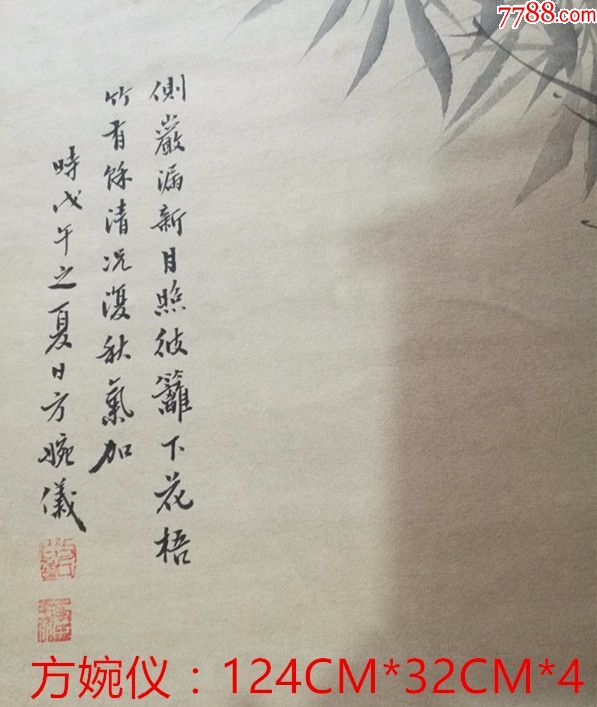 7788.com
側巖漏新月照彼籬下花梧
竹有餘清况復秋氣加
時戊午之夏日方婉儀
方婉仪：124CM*32CM*4